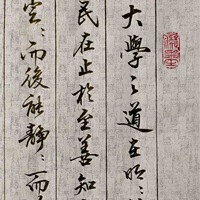 大學之道在明〻
民在止於至善知
定〻而後能靜〻而